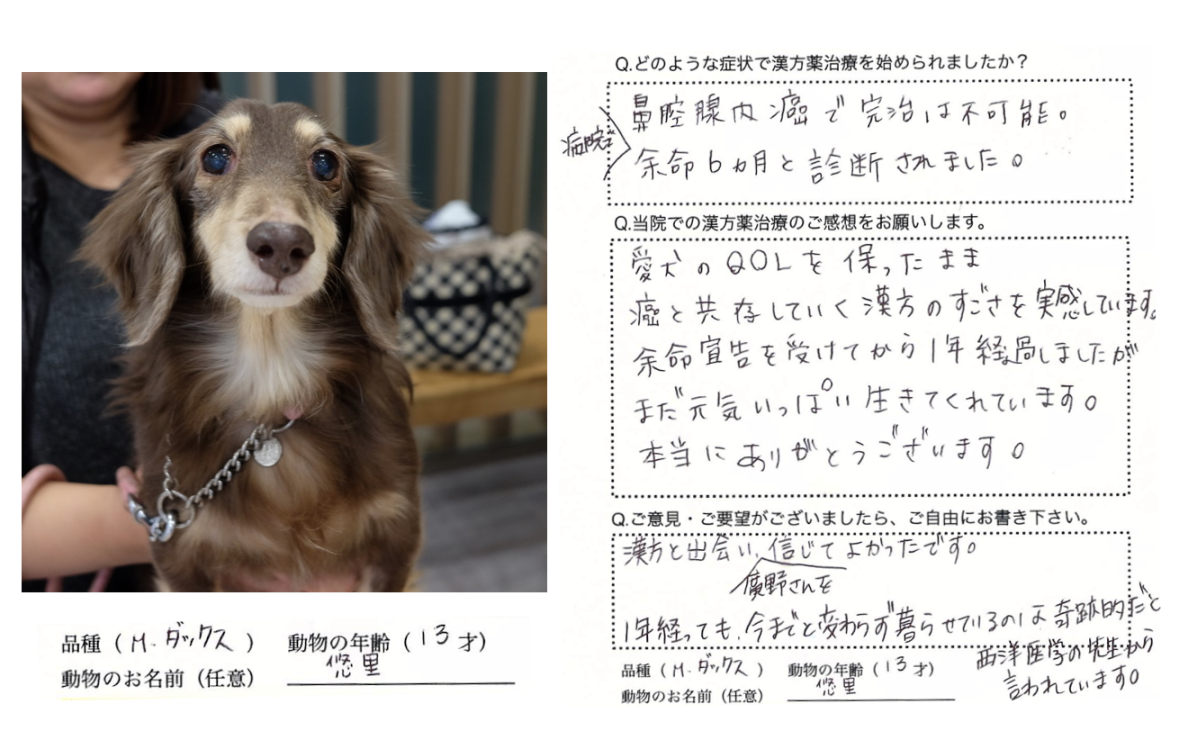 品種（M.ダックス）　動物の年齢（13才）
動物のお名前（任意）　悠里
Q.どのような症状で漢方薬治療を始められましたか？
病院で
鼻腔腺内癌で完治は不可能。
余命6ヵ月と診断されました。
Q.当院での漢方薬治療のご感想をお願いします。
愛犬のQOLを保ったまま
癌と共存していく漢方のすごさを実感しています。
余命宣告を受けてから1年経過しましたが
まだ元気いっぱい生きてくれています。
本当にありがとうございます。
Q.ご意見・ご要望がございましたら、ご自由にお書き下さい。
漢方と出会い、信じてよかったです。
廣野さんを
1年経っても、今までと変わらず暮らせているのは奇跡的だと
西洋医学の先生から
言われています。
品種（M.ダックス）　動物の年齢（13才）
動物のお名前（任意）　悠里